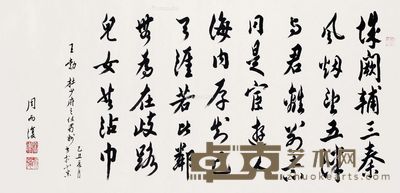 城闕輔三秦
風烟望五津
与君離别意
同是宦遊人
海内存知己
天涯若比鄰
無為在歧路
兒女共沾巾
王勃 杜少府之任蜀州